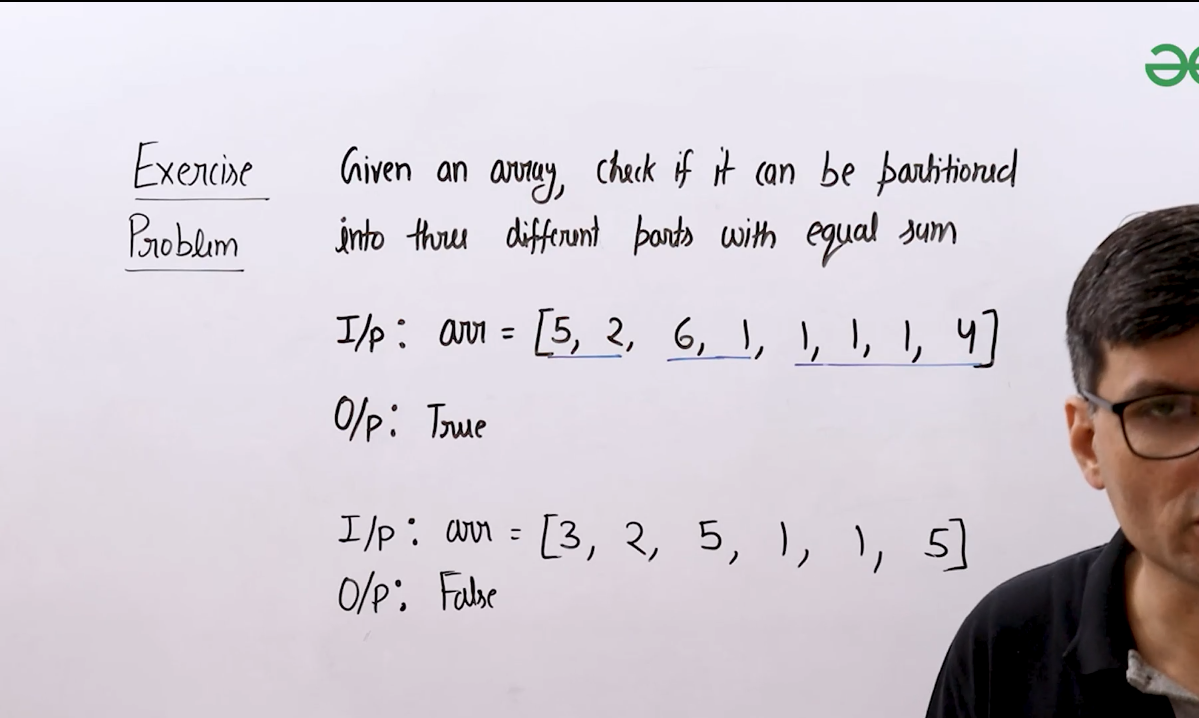 Exercise Problem
Given an array, check if it can be partitioned
into three different parts with equal sum
I/p: arr = [5, 2, 6, 1, 1, 1, 1, 4]
O/p: True
I/p: arr = [3, 2, 5, 1, 1, 5]
O/p: False